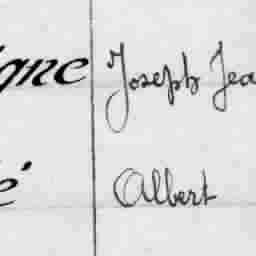 igne Joseph Jea
é Albert